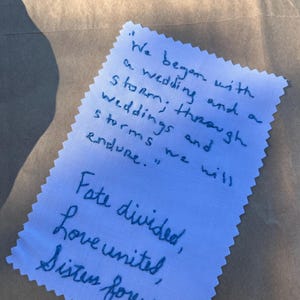 "We began with
a wedding and a
storm; through
weddings and
storms we will
endure."
Fate divided,
Love united,
Sisters